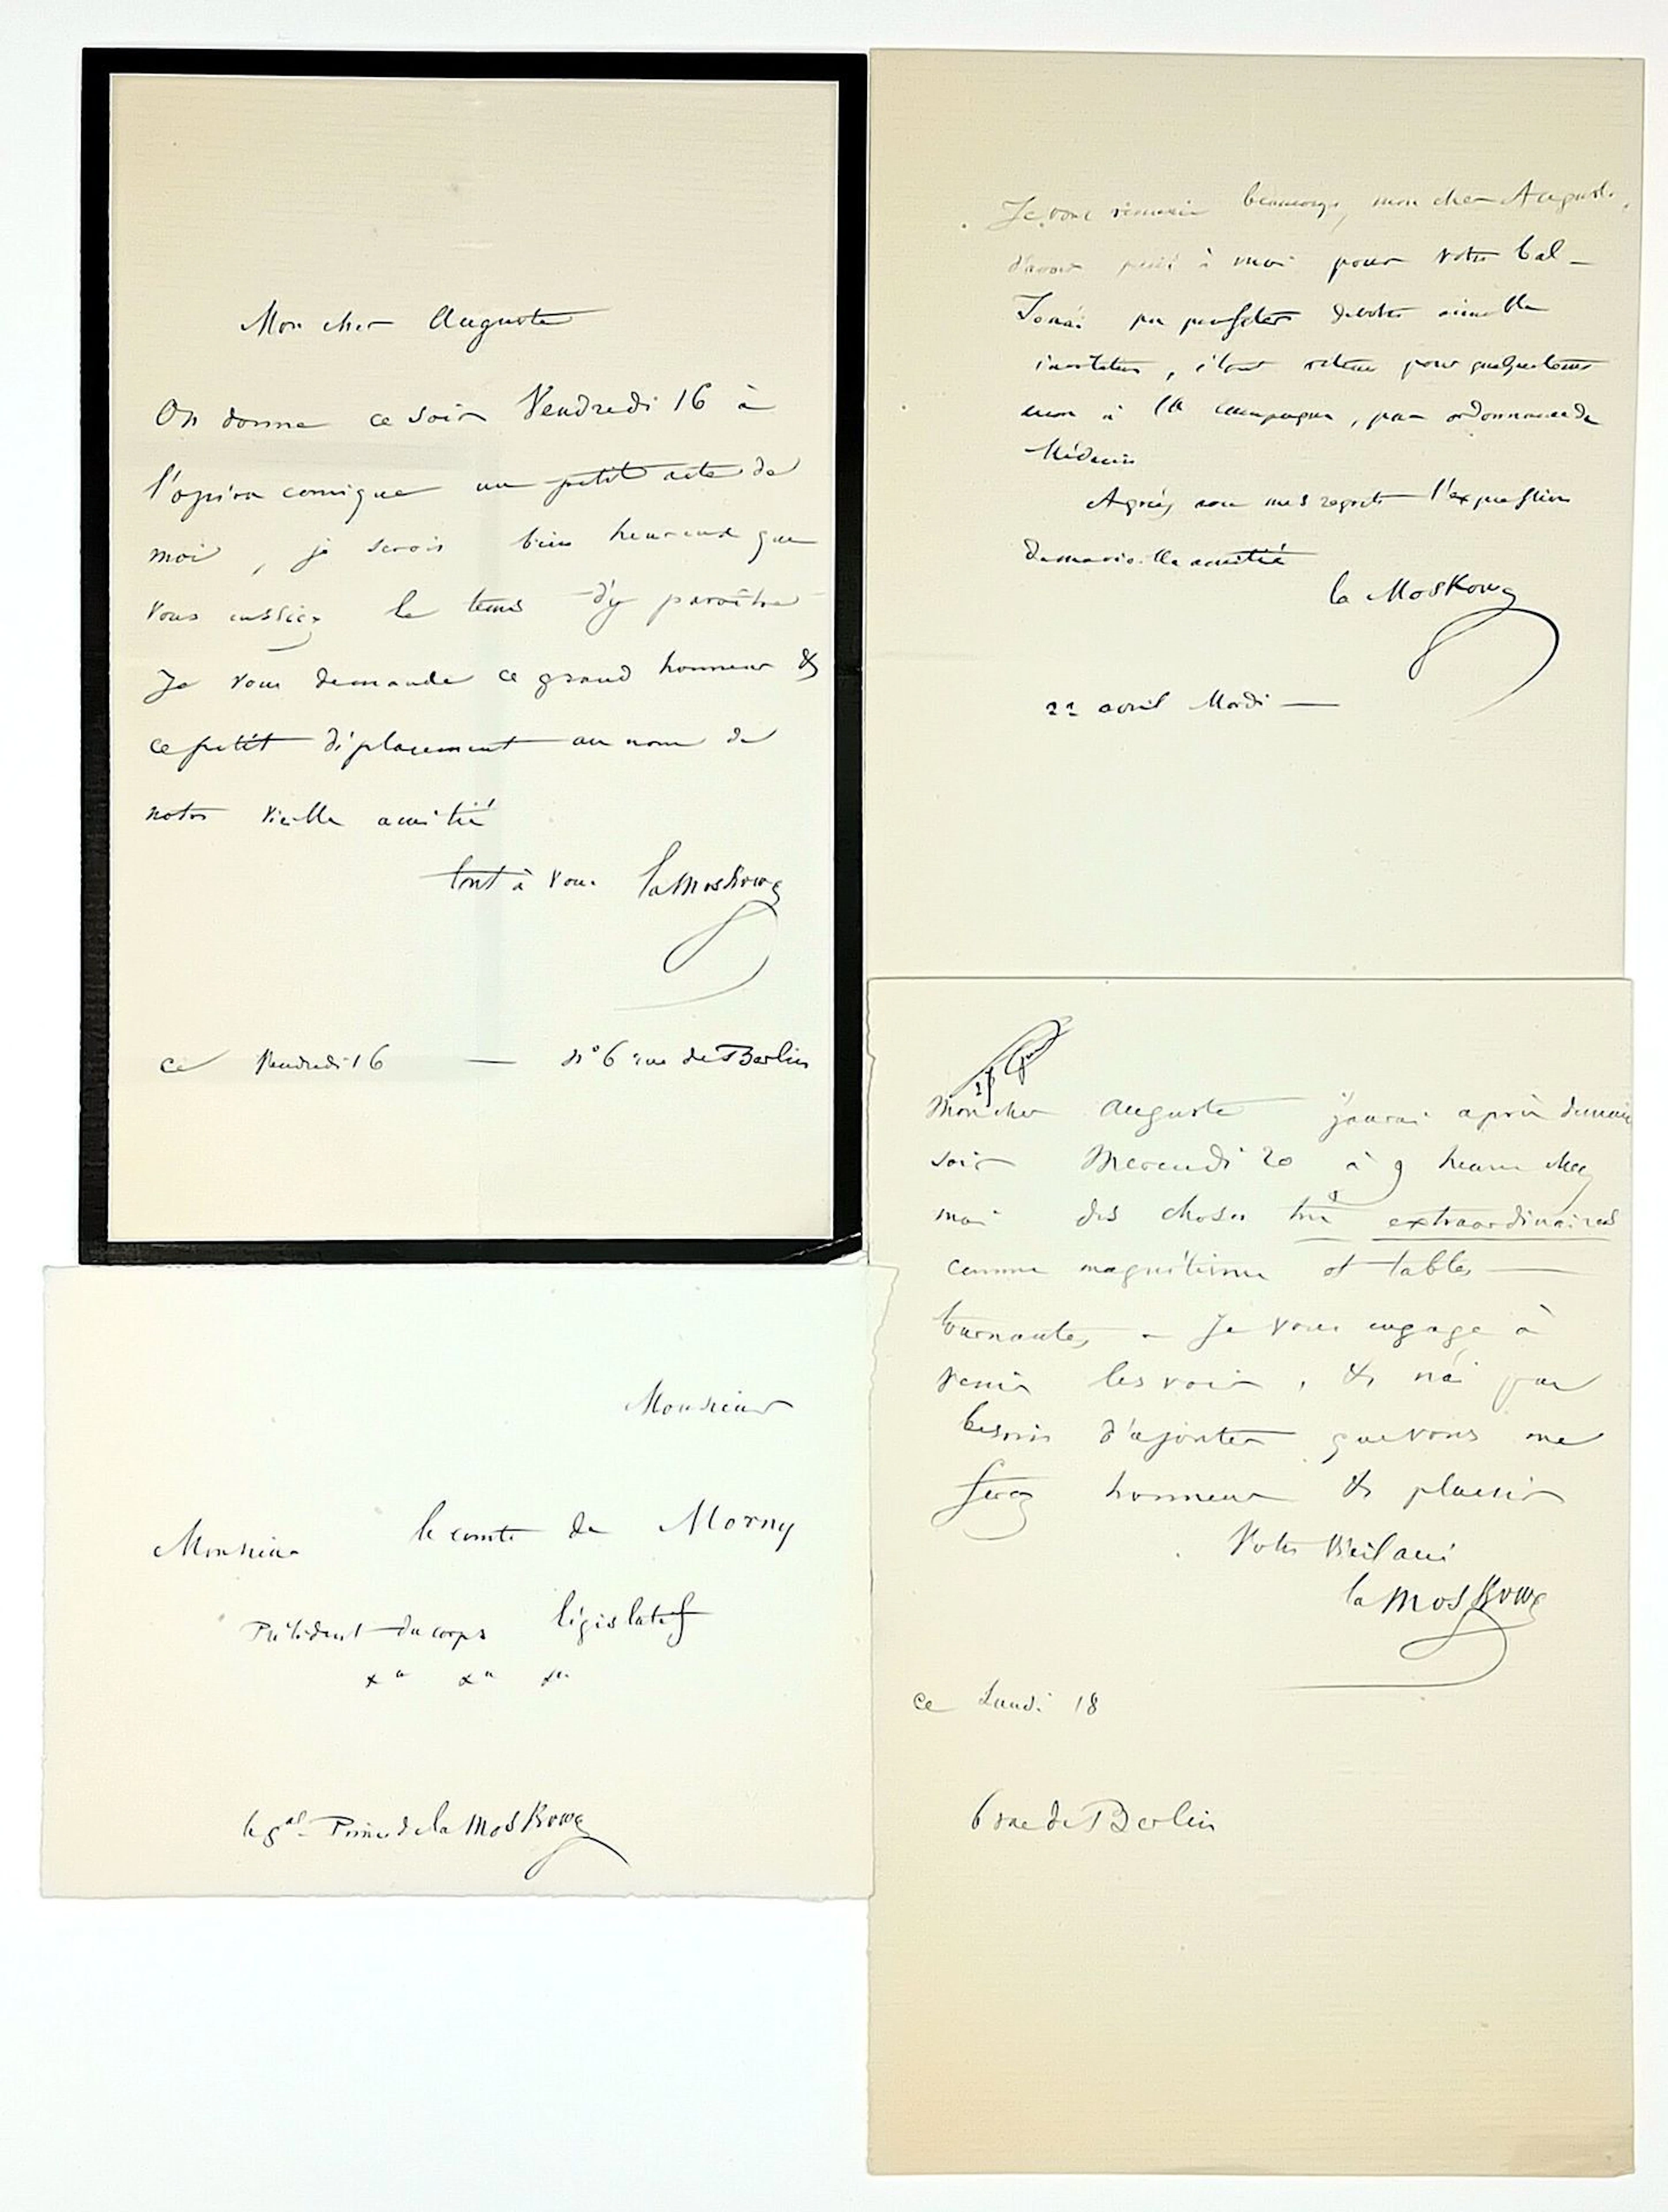 Mon cher Auguste
On donne ce soir Vendredi 16 à
l'opéra comique un petit acte de
moi, je serois bien heureux que
vous eussiez le tems d'y paroître
Je vous demande ce grand honneur &
ce petit déplacement au nom de
notre vieille amitié
tout à vous la Moskowa
ce Vendredi 16 — N° 6 rue de Berlin
Je vous remercie beaucoup, mon cher Auguste,
d'avoir pensé à moi pour votre bal —
Je n'ai pu profiter de votre aimable
invitation, étant retenu pour quelque tems
à la campagne, par ordonnance de
Médecin
Agréez avec mes regrets l'expression
de ma vieille amitié
la Moskowa
22 avril Mardi —
Mon cher Auguste j'aurai après demain
soir Mercredi 20 à 9 heures chez
moi des choses très extraordinaires
comme magnétisme et tables —
tournantes — Je vous engage à
venir les voir, & n'ai pas
besoin d'ajouter que vous me
ferez honneur & plaisir
Votre vieil ami
la Moskowa
ce Lundi 18
6 rue de Berlin
Monsieur
Monsieur le comte de Morny
Président du corps législatif
le gal. Prince de la Moskowa